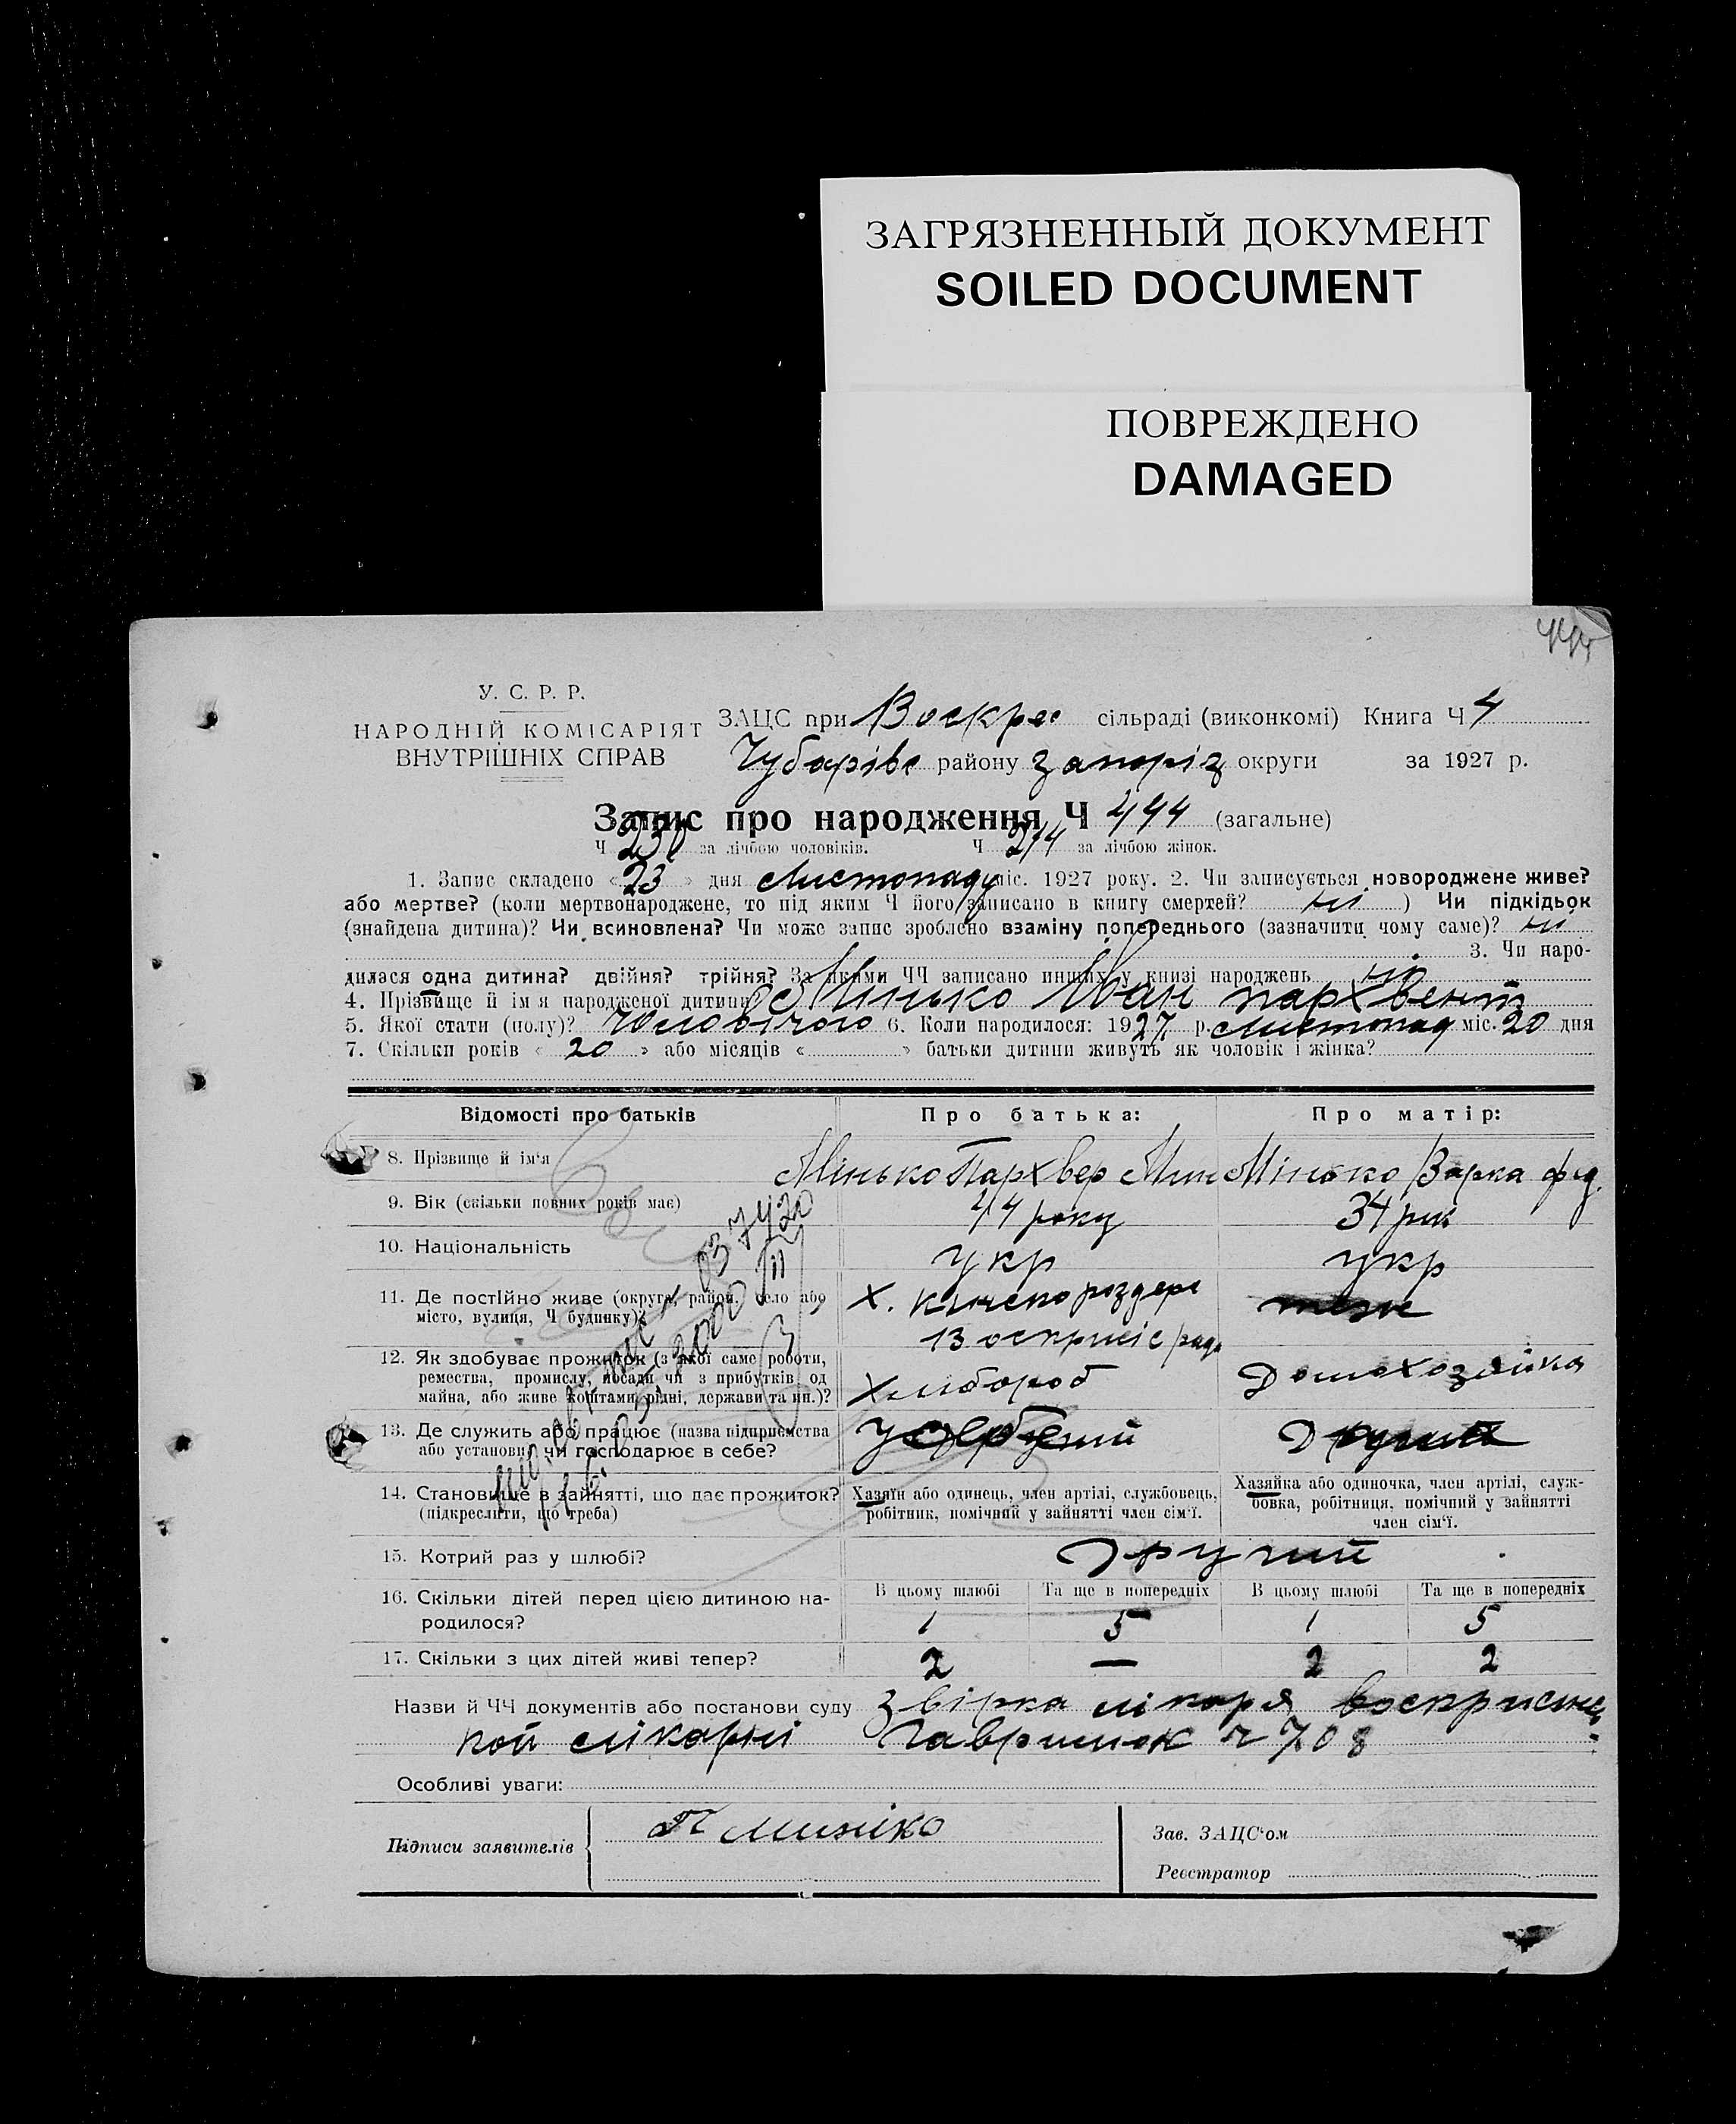 ЗАГРЯЗНЕННЫЙ ДОКУМЕНТ
SOILED DOCUMENT
ПОВРЕЖДЕНО
DAMAGED
У. С. Р. Р.
НАРОДНІЙ КОМІСАРІЯТ
ВНУТРІШНІХ СПРАВ
ЗАЦС при Воскрес сільраді (виконкомі) Книга Ч 4
Чубарівс району Запоріз округи за 1927 р.
Запис про народження Ч 444 (загальне)
Ч 230 за лічбою чоловіків. Ч 214 за лічбою жінок.
1. Запис складено « 23 » дня Листопаду міс. 1927 року. 2. Чи записується новороджене живе?
або мертве? (коли мертвонароджене, то під яким Ч його записано в книгу смертей? ні ) Чи підкідьок
(знайдена дитина)? Чи всиновлена? Чи може запис зроблено взаміну попереднього (зазначити чому саме)? ні
3. Чи наро-
дилася одна дитина? двійня? трійня? За якими ЧЧ записано инших у книзі народжень ні
4. Прізвище й ім'я народженої дитини Мінько Іван Пархвент
5. Якої стати (полу)? Чоловічого 6. Коли народилося: 1927 р. Листопад міс. 20 дня
7. Скільки років « 20 » або місяців « » батьки дитини живуть як чоловік і жінка?
Відомості про батьків Про батька: Про матір:
8. Прізвище й ім'я Мінько Пархвер Мин Мінько Варка фед.
9. Вік (скільки повних років має) 44 року 34 рік
10. Національність укр укр
11. Де постійно живе (округа, район, село або
місто, вулиця, Ч будинку)?
12. Як здобуває прожиток (з якої саме роботи,
ремества, промислу, посади чи з прибутків од
майна, або живе коштами рідні, держави та ин.)?
Хлибороб Домохозяйка
13. Де служить або працює (назва підприємства
або установи) чи господарює в себе?
14. Становище в зайнятті, що дає прожиток?
(підкреслити, що треба)
Хазяїн або одинець, член артілі, службовець,
робітник, помічний у зайнятті член сім'ї.
Хазяйка або одиночка, член артілі, служ-
бовка, робітниця, помічний у зайнятті
член сім'ї.
15. Котрий раз у шлюбі? Другий
16. Скільки дітей перед цією дитиною на-
родилося?
В цьому шлюбі Та ще в попередніх В цьому шлюбі Та ще в попередніх
1 5 1 5
17. Скільки з цих дітей живі тепер? 2 — 2 2
Назви й ЧЧ документів або постанови суду
708
Особливі уваги:
Підписи заявителів П Миніко
Зав. ЗАЦС'ом
Реєстратор